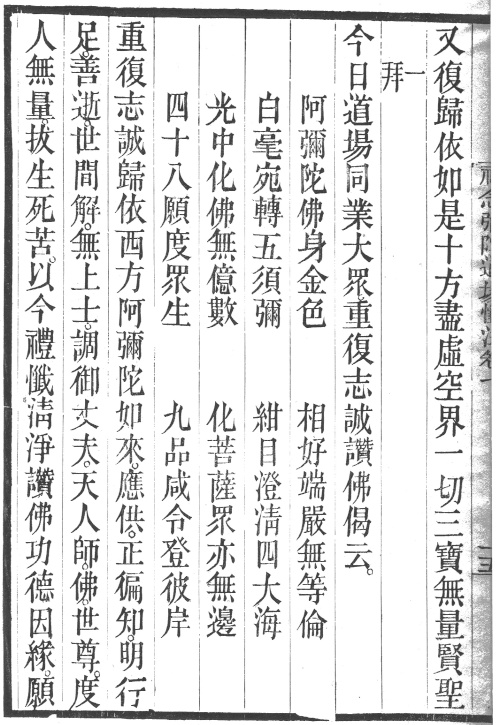 又復歸依如是十方盡虛空界一切三寶無量賢聖
一拜
今日道場同業大眾。重復志誠讚佛偈云。
阿彌陀佛身金色　相好端嚴無等倫
白毫宛轉五須彌　紺目澄清四大海
光中化佛無億數　化菩薩眾亦無邊
四十八願度眾生　九品咸令登彼岸
重復志誠歸依西方阿彌陀如來。應供。正徧知。明行
足。善逝。世間解。無上士。調御丈夫。天人師。佛。世尊。度
人無量。拔生死苦。以今禮懺清淨讚佛功德因緣。願